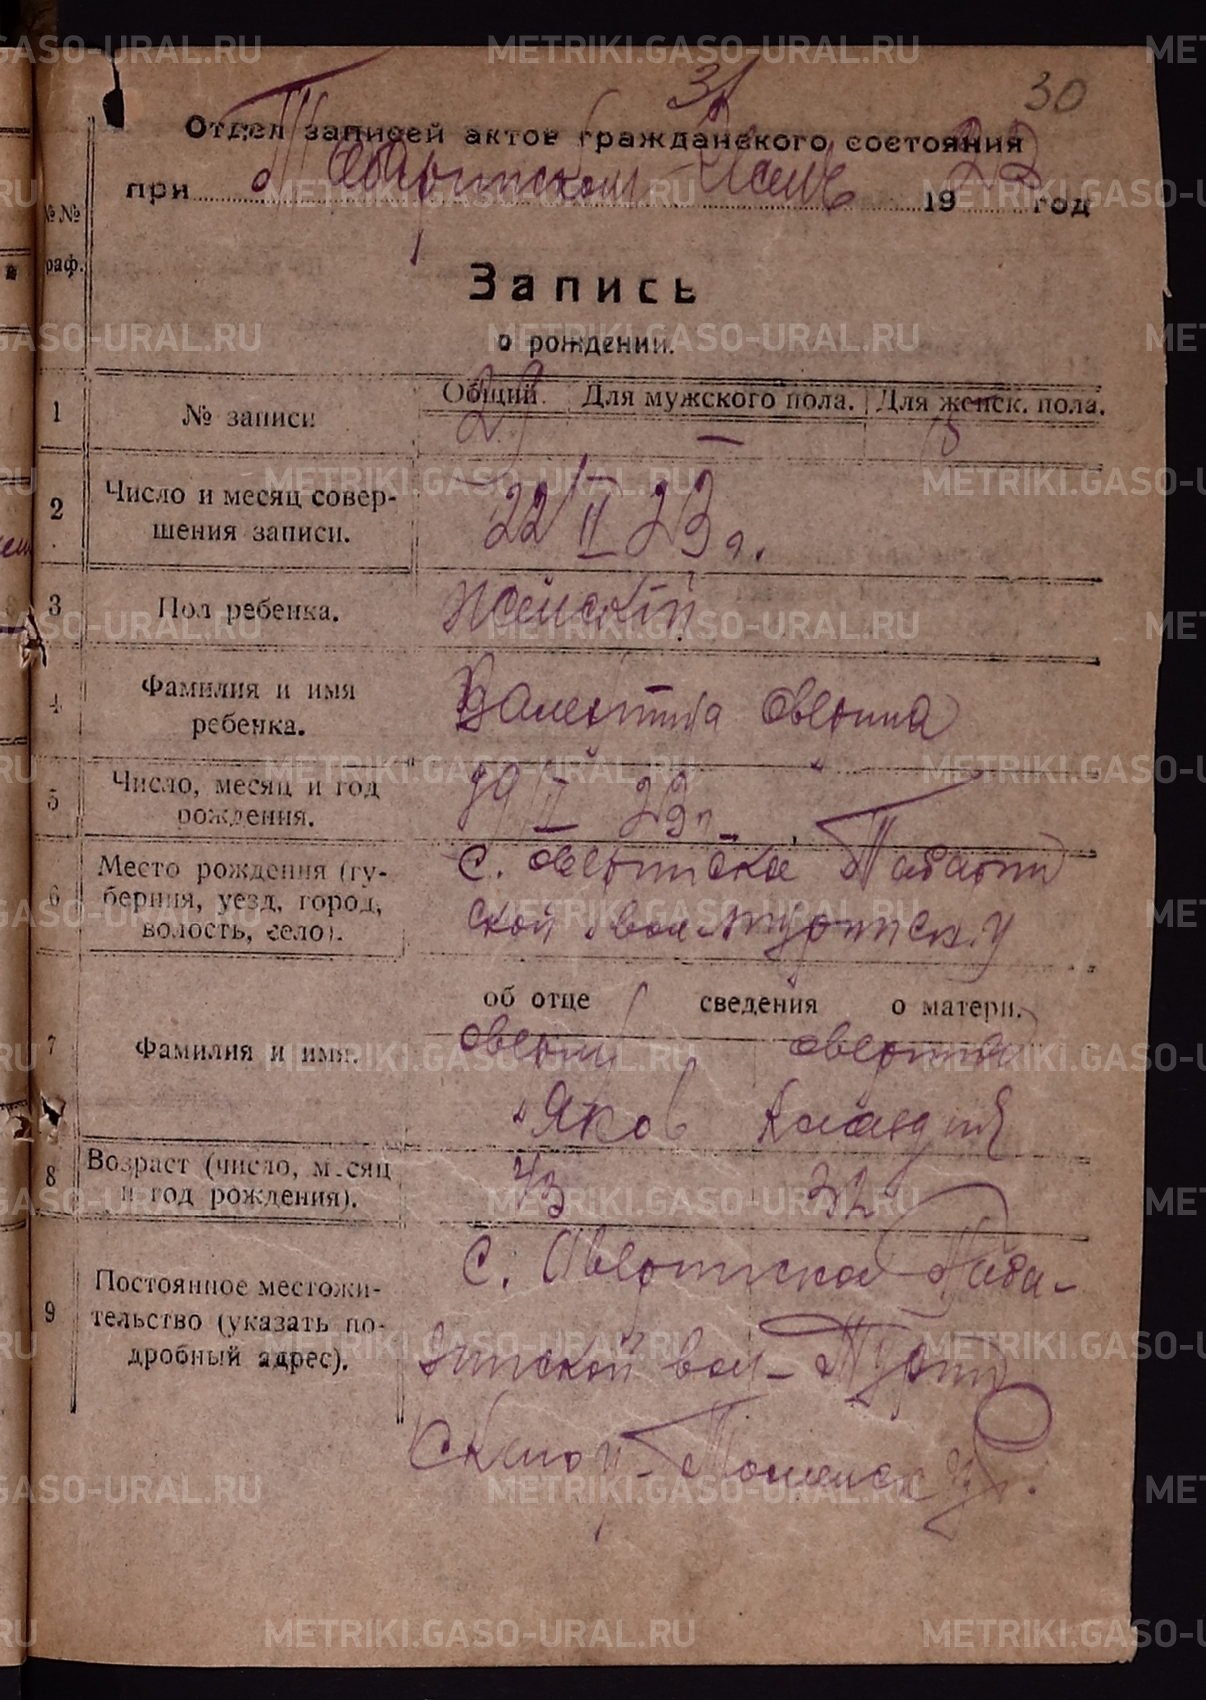 31 30
Отдел записей актов гражданского состояния
при Таборинском 1923 год
№№ граф.
Запись
о рождении.
1 № записи Общий. Для мужского пола. Для женск. пола.
29 — 15
2 Число и месяц совер-
шения записи.
22/II 23 г.
3 Пол ребенка. Женский
4 Фамилия и имя
ребенка.
Валентина Оверина
5 Число, месяц и год
рождения.
19/II 23 г.
6 Место рождения (гу-
берния, уезд, город,
волость, село).
с. Оверинское Таборин
ской вол. Туринск. у
об отце сведения о матери.
7 Фамилия и имя. Оверин Оверина
Яков Клавдия
8 Возраст (число, месяц
и год рождения).
43 32
9 Постоянное местожи-
тельство (указать по-
дробный адрес).
с. Оверинское Табо-
ринской вол. Турин
METRIKI.GASO-URAL.RU